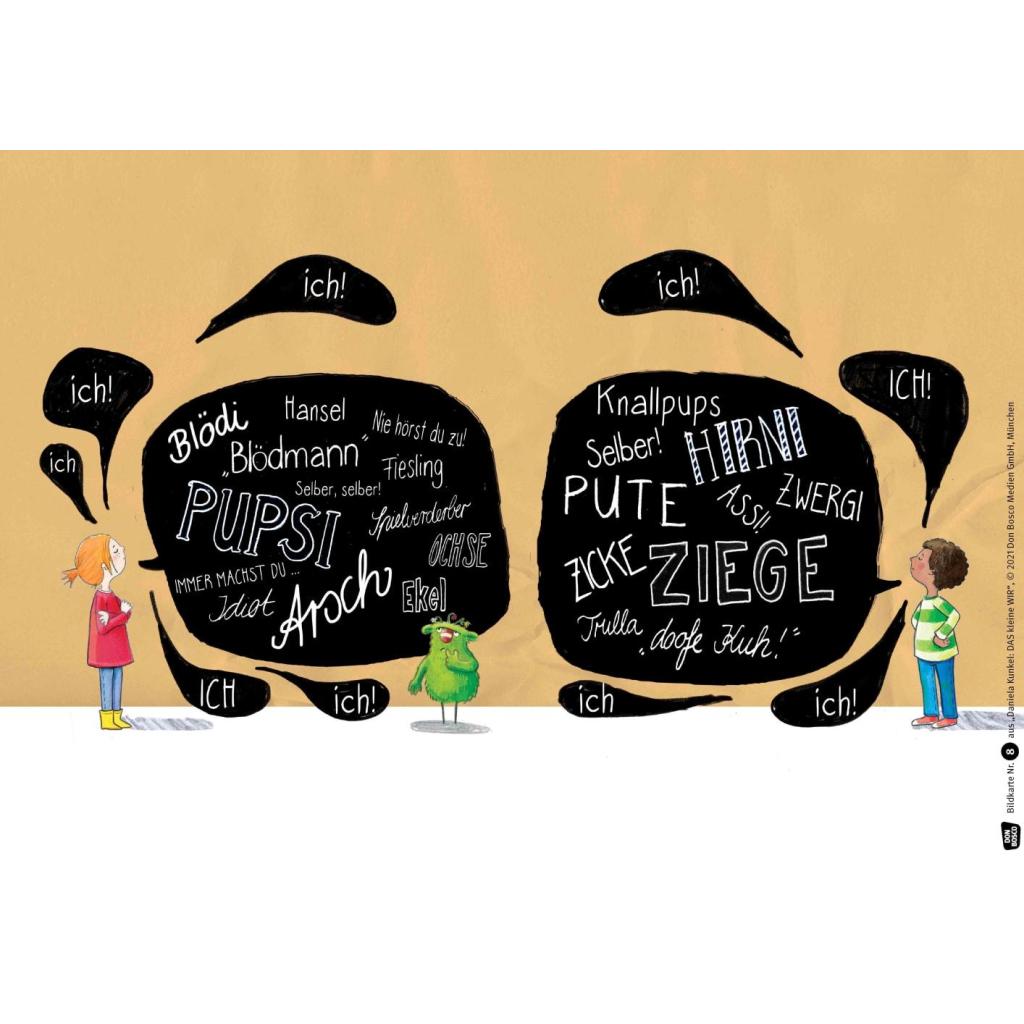 ich!
ich!
ich
Blödi
Hansel
Nie hörst du zu!
„Blödmann“
Fiesling
Selber, selber!
PUPSI
Spielverderber
OCHSE
IMMER MACHST DU ...
Idiot
Arsch
Ekel
ICH
ich!
ich!
ICH!
Knallpups
Selber!
HIRNI
PUTE
ASSI!
ZWERGI
ZICKE
ZIEGE
Trulla
„doofe Kuh!“
ich
ich!
Bildkarte Nr. 8 aus „Daniela Kunkel: DAS kleine WIR“, © 2021 Don Bosco Medien GmbH, München
DON
BOSCO